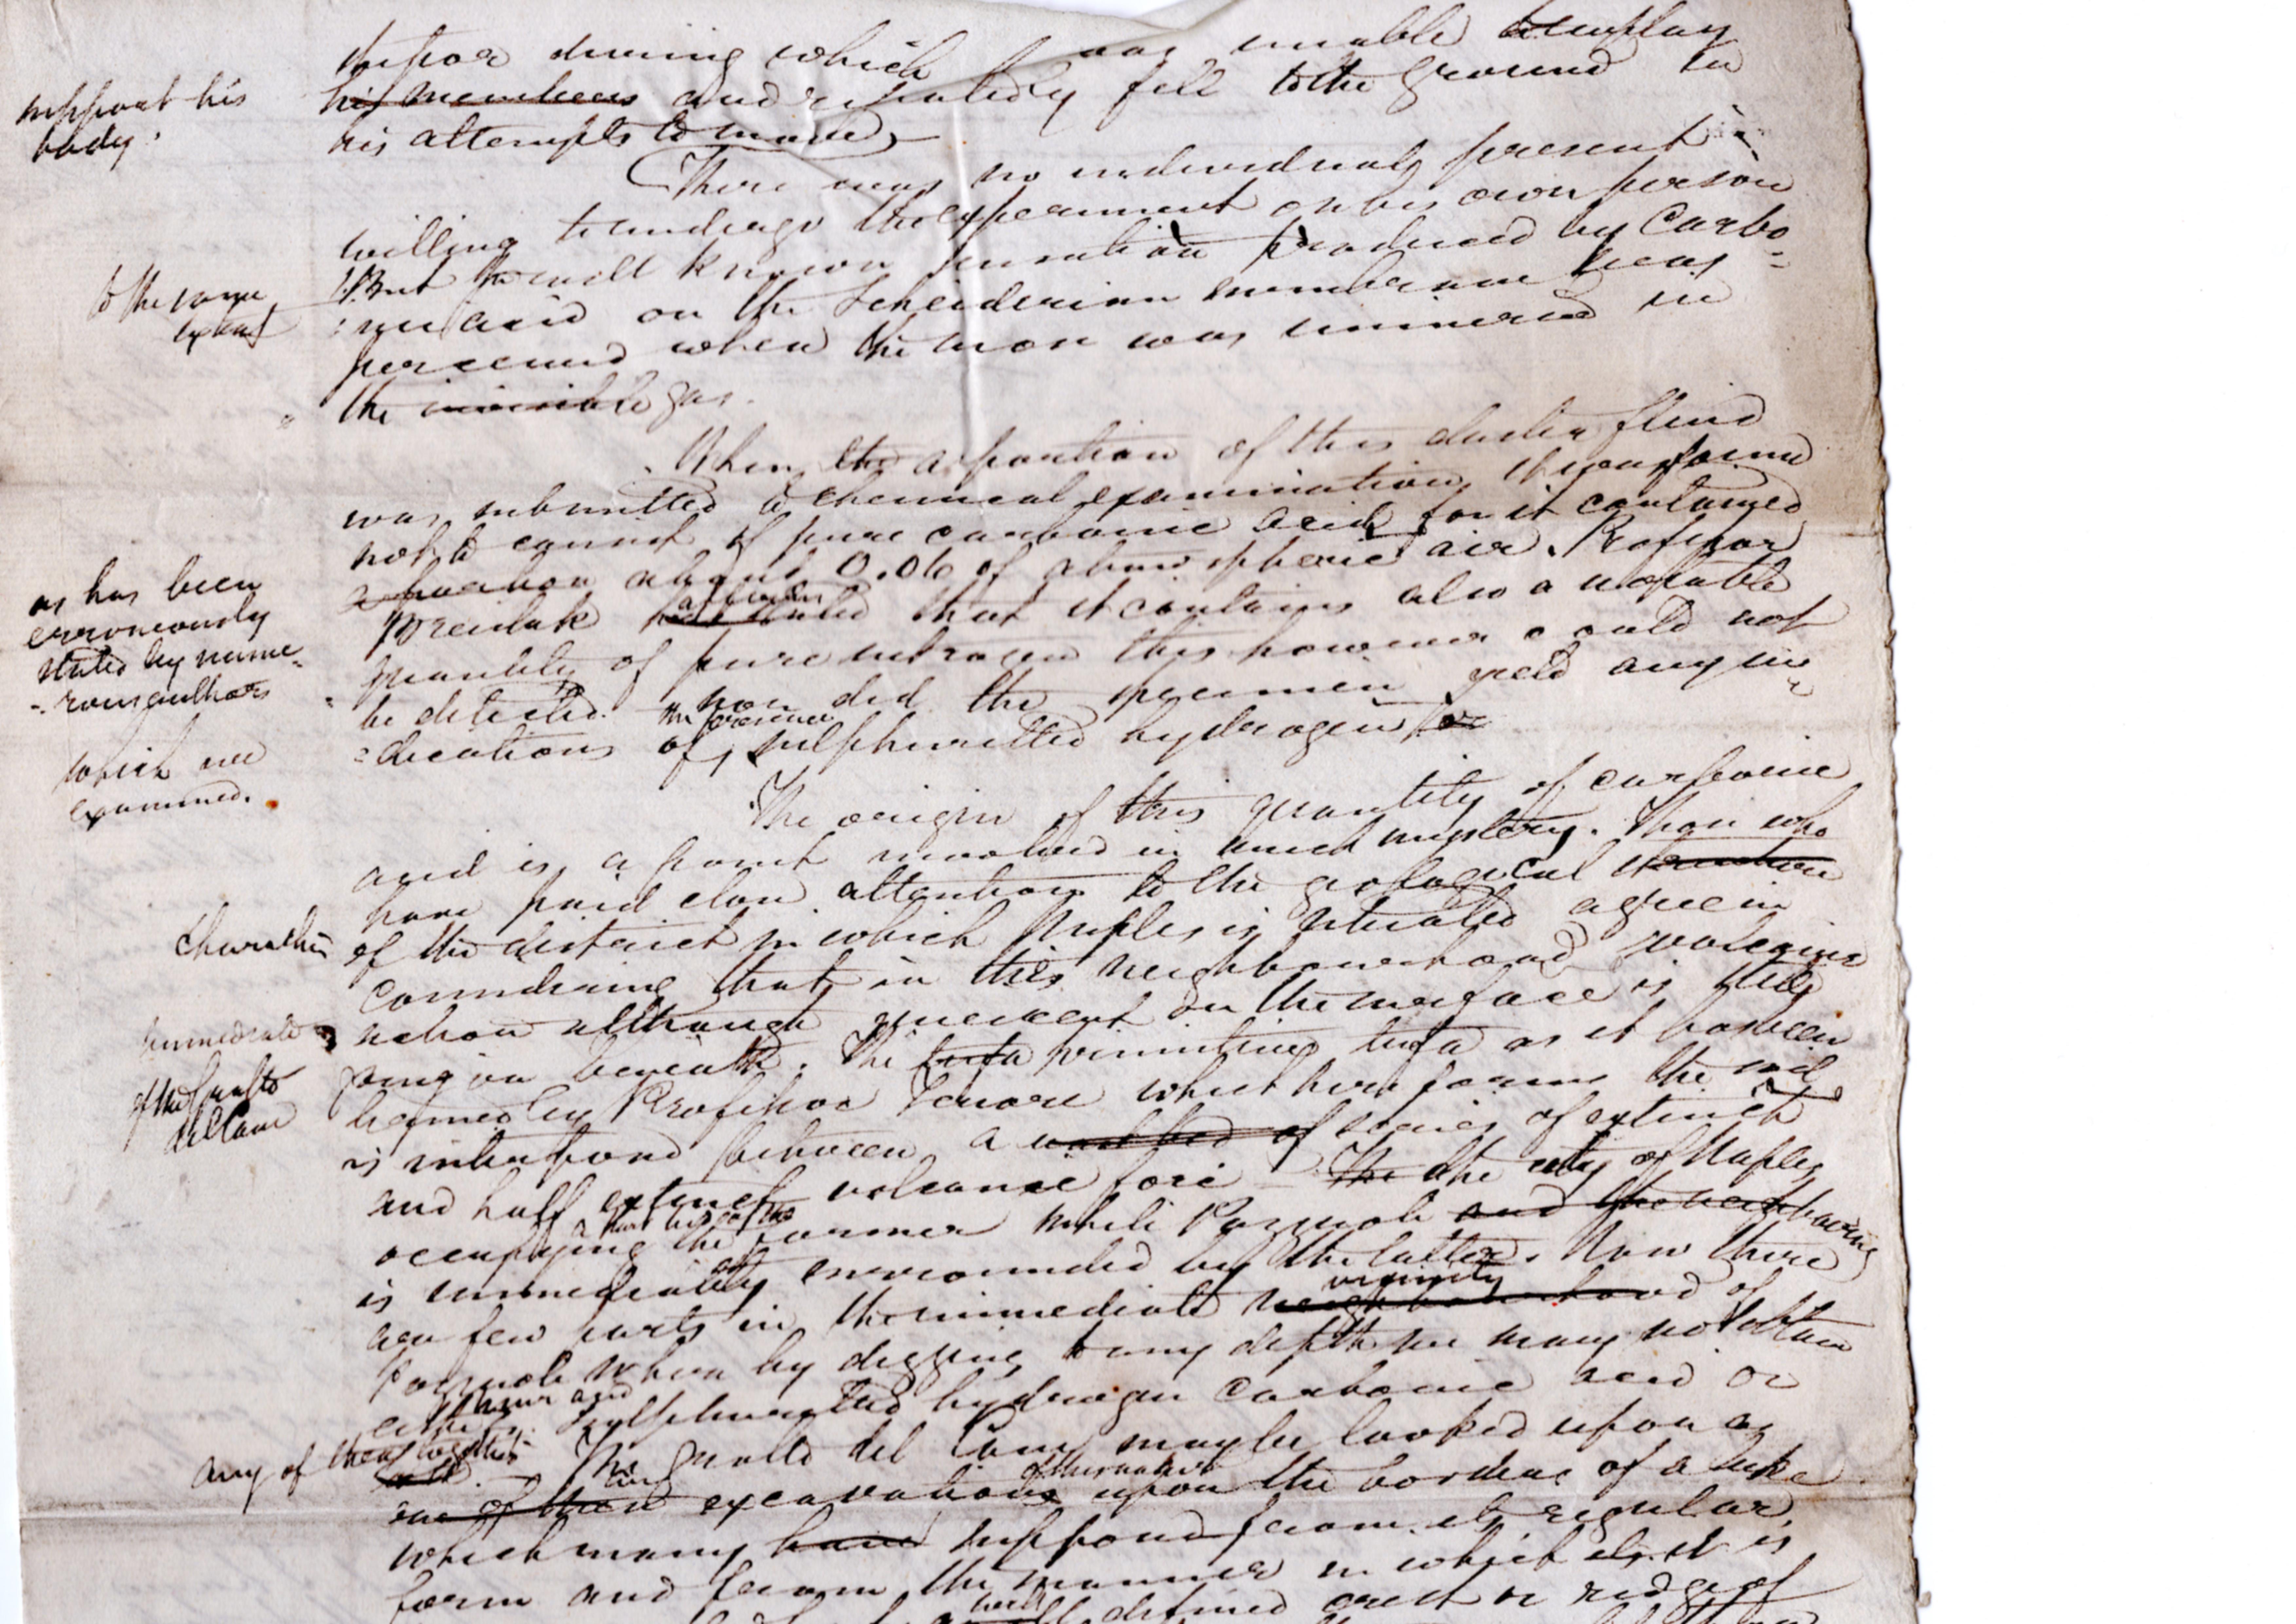 stupor during which was unable to employ
support his
body.
his members and repeatedly fell to the ground in
his attempts to move,
There was no individual present
willing to undergo the experiment on his own person
to the same
extent
But the well known sensation produced by Carbo-
:nic acid on the Schneiderian membrane was
perceived when the nose was immersed in
the invisible gas.
When the a portion of this elastic fluid
was submitted to chemical examination, it was found
not to consist of pure carbonic acid, for it contained
as has been
erroneously
stated by nume-
-rous authors
a portion about 0.06 of atmospheric air. Professor
Breislak has stated that it contains also a notable
quantity of pure nitrogen this however could not
be detected. nor did the specimen yeld any in-
which we
examined.
the presence
=dications of sulphuretted hydrogen or
The origin of this quantity of carbonic
acid is a point involved in much mystery. Those who
have paid close attention to the geological structure
character
of the district in which Naples is situated agree in
considering that in this neighbourhood volcanic
action although quiescent on the surface is still
immediate
going on beneath. The tufa vomitino tufa as it has been
of the Grotto
del Cane
termed by Professor Tenore which here forms the soil
is interposed between a vast bed of series of extinct
and half extinct volcanic foci – The the city of Naples
occupying the former while Pozzuoli and the neighbouring
is immediately surrounded by the latter. Now there
are few parts in the immediate neighbourhood of
vicinity
Pozzuoli where by digging to any depth we may not obtain
either sulphuretted hydrogen Carbonic acid or
any of these
The Grotto del Cane may be looked upon as
one of these excavations upon the borders of a lake
which many have suppose from its regular
form and from the manner in which it is
well defined crest or ridge of